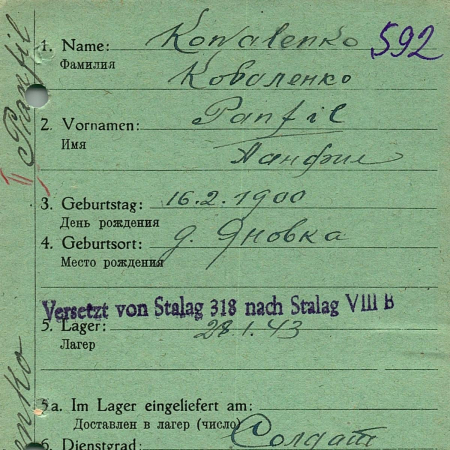 1. Name: Kowalenko 592
Фамилия Коваленко
2. Vornamen: Panfil
Имя Панфил
3. Geburtstag: 16.2.1900
День рождения
4. Geburtsort: д. Яновка
Место рождения
Versetzt von Stalag 318 nach Stalag VIII B
5. Lager: 28.1.43
Лагер
5a. Im Lager eingeliefert am:
Доставлен в лагер (число)
6. Dienstgrad: Солдат
Panfil
II
enko